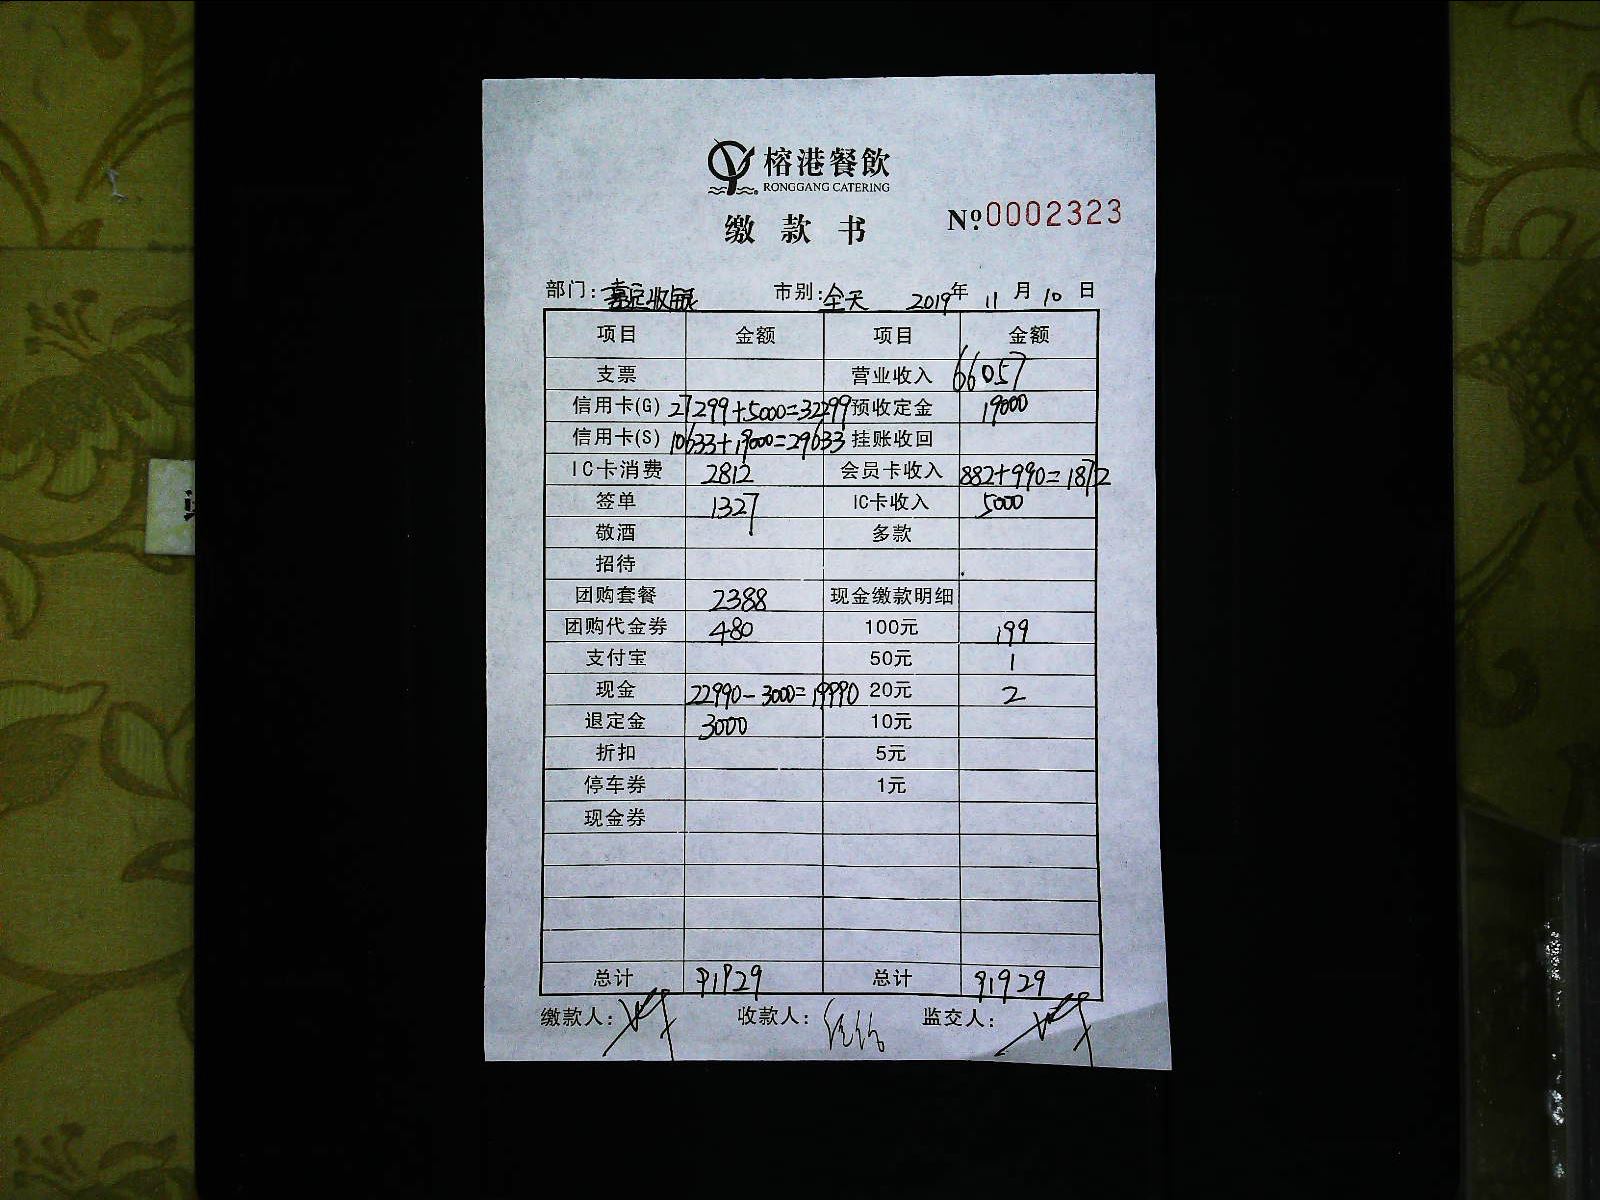 榕港餐飲
RONGGANG CATERING
缴款书
No.0002323
部门:嘉定收银 市别:全天 2019年11月10日
项目 金额 项目 金额
支票 营业收入 66057
信用卡(G) 27299+5000=32299 预收定金 19000
信用卡(S) 10633+19000=29633 挂账收回
IC卡消费 2812 会员卡收入 882+990=1872
签单 1327 IC卡收入 5000
敬酒 多款
招待
团购套餐 2388 现金缴款明细
团购代金券 480 100元 199
支付宝 50元 1
现金 22990-3000=19990 20元 2
退定金 3000 10元
折扣 5元
停车券 1元
现金券
总计 91929 总计 91929
缴款人: 收款人: 监交人: